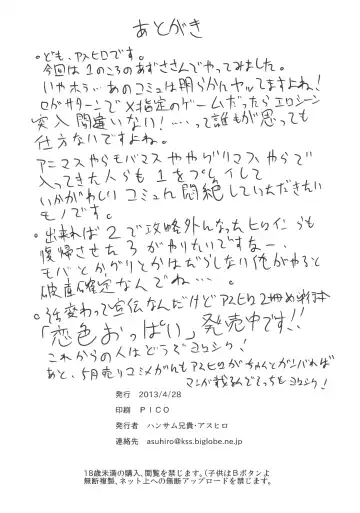 あとがき
・ども、アスヒロです。
今回は1のころのあずささんでやってみました。
いやホラ…あのコミュは明らかにヤッてますよね!
セガサターンでX指定のゲームだったらエロシーン
突入間違いない!…って誰もが思っても
仕方ないですよね。
アニマスやらモバマスやらグリマスやらで
入ってきた人らも1をプレイして
いかがわしいコミュに悶絶していただきたい
モノです。
・出来れば2で攻略外になったヒロインらも
復帰させたろがやりたいですなー、
モバとかグリとかはだらしない俺がやると
破産確定なんでね…。
・話変わって宣伝なんだけどアスヒロ2冊め単行本
「恋色おっぱい」発売中です!!
これからの人はどうぞヨロシク!
あと、5月売りコミメガにもアスヒロがちゃんとガンバれば
マンガ載るんでそっちもヨロシク!
発行 2013/4/28
印刷 PICO
発行者 ハンサム兄貴・アスヒロ
連絡先 asuhiro@kss.biglobe.ne.jp
18歳未満の購入、閲覧を禁じます。(子供はBボタンよ
無断複製、ネット上への無断アップロードを禁じます。